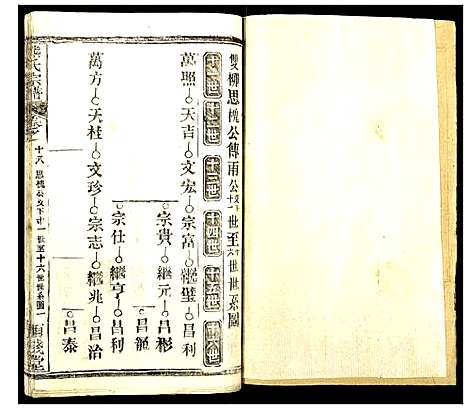 雙柳思槐公傳雨公文下十一世至十六世世系圖
十一世 十二世 十三世 十四世 十五世 十六世
萬照 天吉 文宏 宗富 繼璧 昌利
宗貴 繼元 昌彬
昌領
宗仕 繼亨 昌利
萬方 天柱 文珍 宗志 繼兆 昌治
昌泰
氏宗譜
十八 思槐公文下十一世至十六世世系圖一